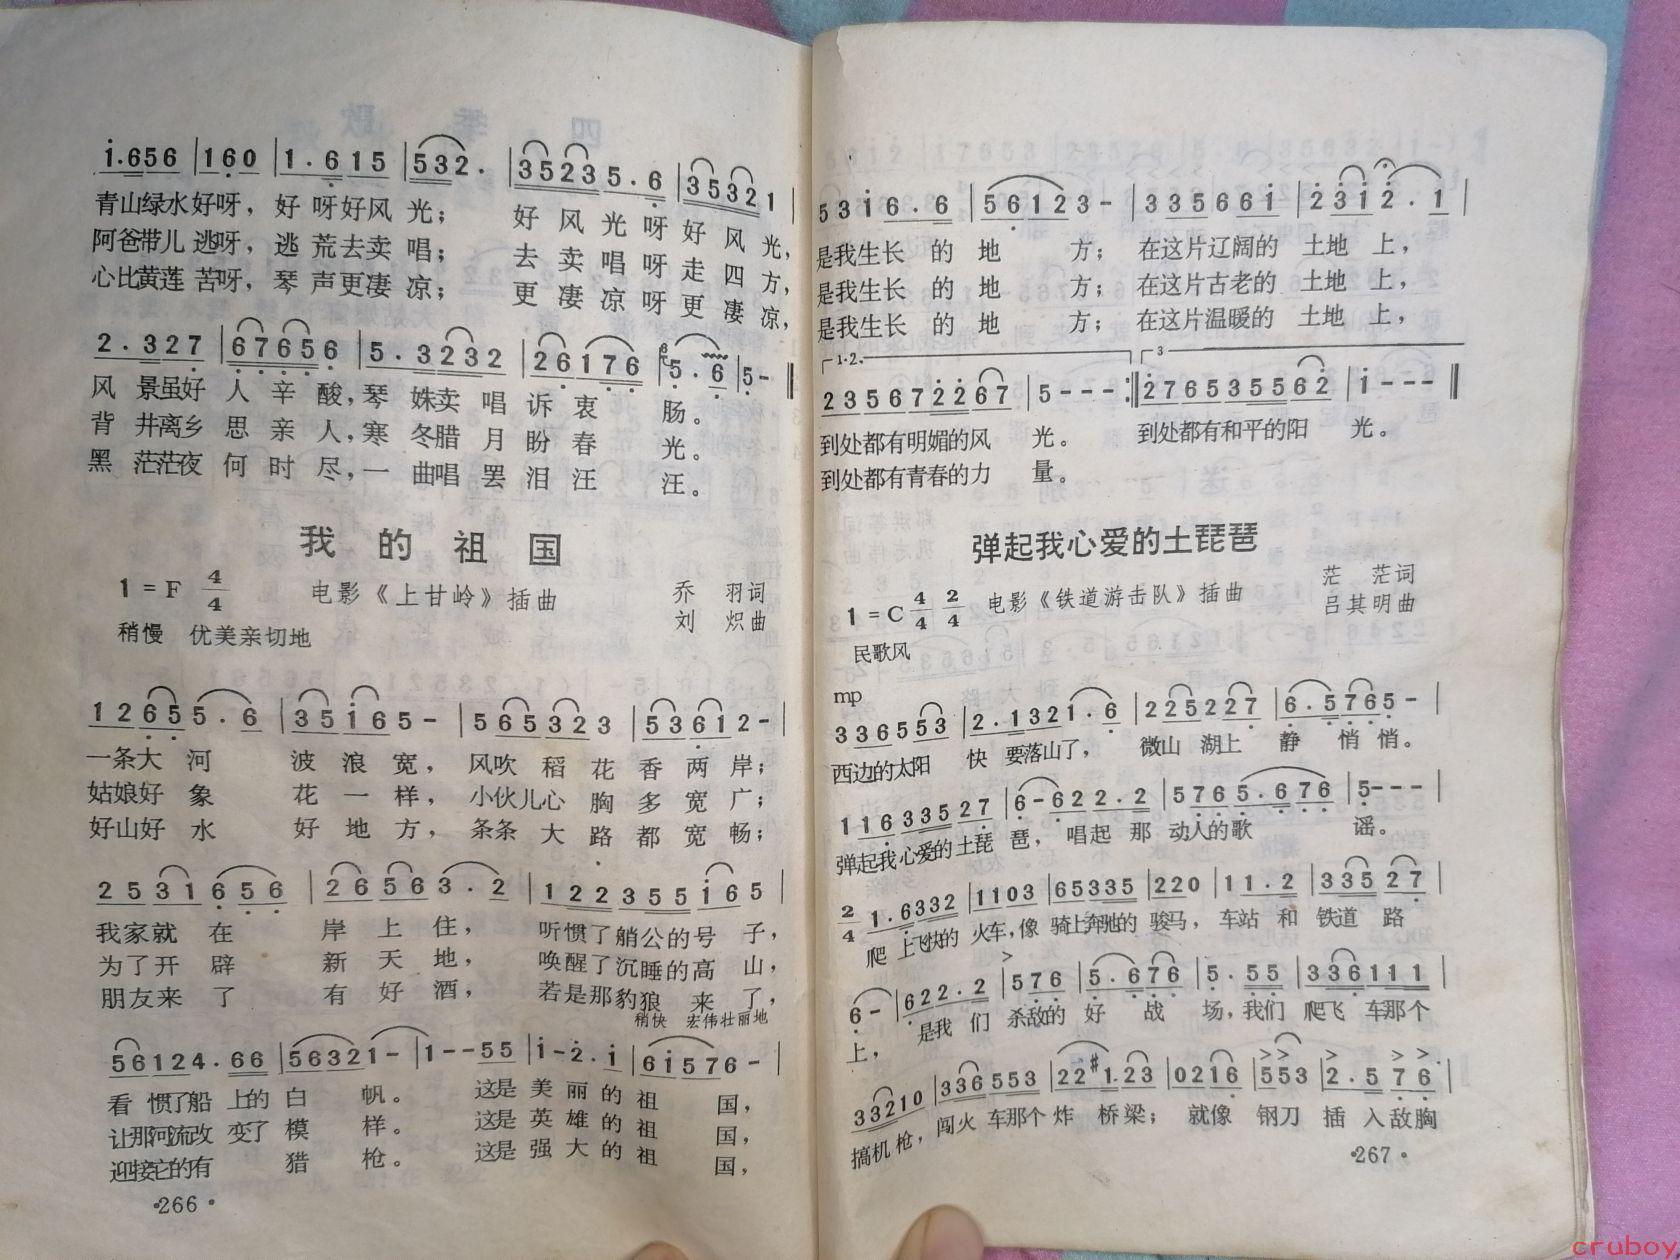 1·656 | 160 | 1·615 | 532· | 35235·6 | 35321 |
青山绿水好呀，好呀好风光；好风光呀好风光，
阿爸带儿逃呀，逃荒去卖唱；去卖唱呀走四方，
心比黄莲苦呀，琴声更凄凉；更凄凉呀更凄凉，
2·327 | 67656 | 5·3232 | 26176 | 5·6 | 5- ‖
风景虽好人辛酸，琴姝卖唱诉衷肠。
背井离乡思亲人，寒冬腊月盼春光。
黑茫茫夜何时尽，一曲唱罢泪汪汪。
我的祖国
1=F 4/4 电影《上甘岭》插曲 乔羽词
刘炽曲
稍慢 优美亲切地
12655·6 | 35165- | 565323 | 53612- |
一条大河波浪宽，风吹稻花香两岸；
姑娘好象花一样，小伙儿心胸多宽广；
好山好水好地方，条条大路都宽畅；
2531656 | 26563·2 | 122355165 |
我家就在岸上住，听惯了艄公的号子，
为了开辟新天地，唤醒了沉睡的高山，
朋友来了有好酒，若是那豺狼来了，
稍快 宏伟壮丽地
56124·66 | 56321- | 1--55 | 1-2·1 | 61576- |
看惯了船上的白帆。这是美丽的祖国，
让那河流改变了模样。这是英雄的祖国，
迎接它的有猎枪。这是强大的祖国，
·266·
5316·6 | 56123- | 335661 | 2312·1 |
是我生长的地方；在这片辽阔的土地上，
是我生长的地方；在这片古老的土地上，
是我生长的地方；在这片温暖的土地上，
1·2. 3
235672267 | 5--- :‖ 276535562 | 1--- ‖
到处都有明媚的风光。到处都有和平的阳光。
到处都有青春的力量。
弹起我心爱的土琵琶
1=C 4/4 2/4 电影《铁道游击队》插曲 茫茫词
吕其明曲
民歌风
mp
336553 | 2·1321·6 | 225227 | 6·5765- |
西边的太阳快要落山了，微山湖上静悄悄。
11633527 | 6-622·2 | 5765·676 | 5--- |
弹起我心爱的土琵琶，唱起那动人的歌谣。
2/4 1·6332 | 1103 | 65335 | 220 | 11·2 | 33527 |
爬上飞快的火车，像骑上奔驰的骏马，车站和铁道路
6- | 622·2 | 576 | 5·676 | 5·55 | 336111 |
上，是我们杀敌的好战场，我们爬飞车那个
33210 | 336553 | 22#123 | 0216 | 553 | 2·576 |
搞机枪，闯火车那个炸桥梁；就像钢刀插入敌胸
·267·
cruboy